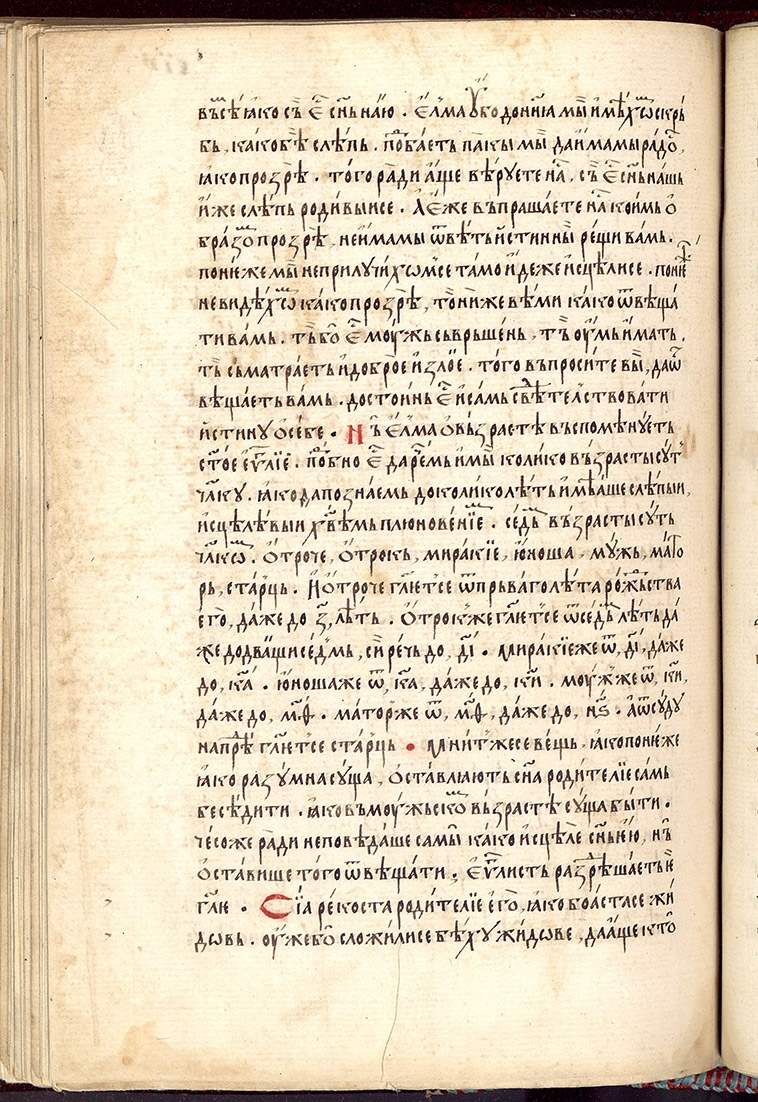 въсѣ꙽ ꙗ҆ко съ є҆с҇ сн҃ь наю . є҆лма ѹ҆бо до нн҃ꙗ мы̏ и҆мѣ́хꙍⷨ скръ́
бь , ка́ко бѣ̏ слѣ́пь . поⷣба́еть па́кы мы̏ да и҆мамы ра́доⷭ҇ ,
ꙗ҆ко прозрѣ̀ . то́го ра́ди а҆́ще вѣ́руете на̏ , съ̏ є҆с҇ сн҃ь на́шь
и҆́же слѣ́пь роди́выисе . А҆ є҆́же въпраша́ете на̏ кои́мь о҆
бра́зоⷨ прозрѣ̀ , не и҆́мамы ѿвѣ́ть и҆́стинны рещи ва́мь .
поне́же мы̏ не прилучи́хꙍмсе та́мо и҆де́же и҆сцѣ́лисе . поне́
не ви́дѣхꙍⷨ ка́ко прозрѣ̀ , то̀ ни́же вѣ́ми ка́ко ѿвѣща́
ти ва́мь . тъ́ бо̀ є҆с҇ моу́жь съвръше́нь , тъ̏ оу҆́мь и҆́мать .
тъ̏ сьматра́еть и҆ до́брое и҆ зло́е . то́го въпроси́те вы̏ , да ѿ
вѣща́еть ва́мь . досто́инь є҆с҇ и҆ са́мь свѣ́те́лствовати
и҆́стину ѡ҆ се́бе . Нъ̏ є҆лма о҆ възра́стѣ въспоме́нуеть
ст҃ое є҆ѵⷢ҇лїе . поⷣ́бно є҆с҇ да ре́мь и҆ мы̏ коли́ко възра́сты су́т
чл҃ку . ꙗ҆ко да позна́емь до коли́ко лѣ́ть и҆мѣ́аше слѣ́пыи ,
и҆сцѣлѣ́выи хв҃ѣмь плюнове́нїеⷨ . се́дⷨь възра́сты су́ть
чл҃кꙍⷨ . Ѻ҆́троче , ѻ҆́трокь , мира́кїе , ю҆́ноша , му́жь , ма́то
рь , ста́рць . И҆ ѻ҆́троче гл҃етсе ѿ пръ́ваго лѣ́та рожⷣьства
е҆го̀ , да́же до з҃ , лѣ́ть . Ѻ҆́трок же гл҃етсе ѿ се́дⷨь лѣ́ть да́
же до два́щи се́дмь , си́ рѣчь до , д҃і . мира́кїе же ѿ , д҃і , да́же
до , к҃а . ю҆́ноша же ѿ , к҃а , да́же до , к҃и . моу́ж же ѿ , к҃и ,
да́же до , м҃ѳ . ма́тор же ѿ , м҃ѳ , да́же до , н҃ѕ . А҆ ѿсу́ду
напрѣⷣ гл҃етсе ста́рць . мни́т же се ве́щь , ꙗ҆ко поне́же
ꙗ҆ко разу́мна су́ща , ѻ҆ста́влꙗють сн҃а роди́телїе са́мь
бесѣ́дити . ꙗ҆ко въ моу́жьскоⷨ възра́стѣ су́ща бы́ти .
че́со же ра́ди не повѣ́даше самы̀ ка́ко и҆сцѣ́ле сн҃ь и҆ю̀ , нъ̏
ѻ҆ста́више то́го ѿвѣща́ти . є҆ѵⷢ҇листь разрѣша́еть и҆
гл҃ю . Сїа реко́ста роди́телїе е҆го̀ , ꙗ҆ко боꙗ́стасе жи́
дѡвь . оу҆же́ бо̀ сложи́лисе бѣ́ху жи́дѡве , да а҆́ще кто̀